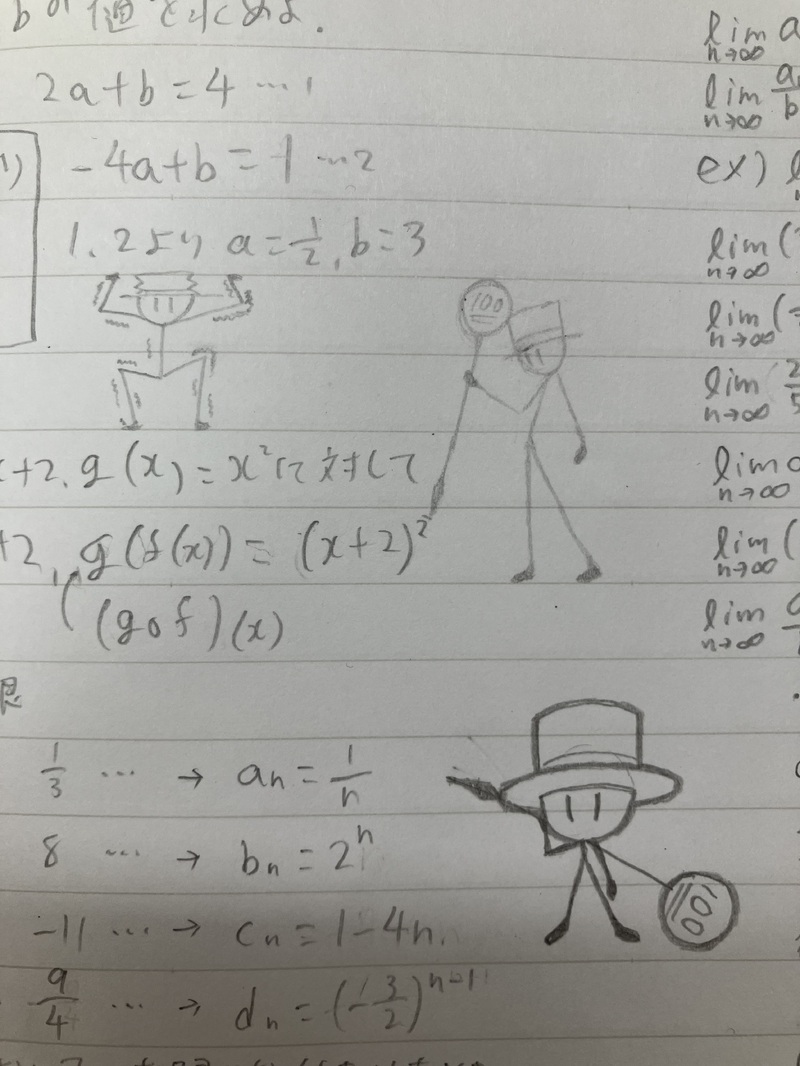 2a+b=4 … 1
1)
-4a+b=1 … 2
1、2より a=1/2, b=3
100
x+2, g(x)=x²に対して
+2, g(f(x))=(x+2)²
(g∘f)(x)
限
1/3 … → aₙ=1/n
8 … → bₙ=2ⁿ
-11 … → cₙ=1-4n
9/4 … → dₙ=(-3/2)ⁿ⁻¹
100
lim n→∞ a
lim n→∞ a/b
ex) l
lim n→∞ (
lim n→∞ (
lim n→∞ 2/5
lim n→∞
lim n→∞ (
lim n→∞